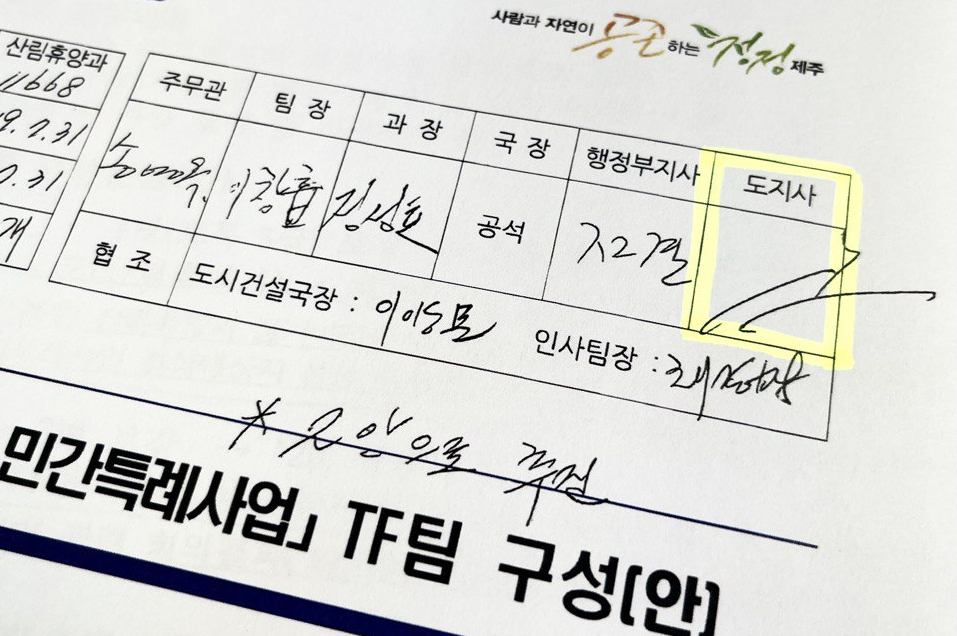 사람과 자연이 공존 하는 청정 제주
산림휴양과
11668
9.7.31
0.31
개
주무관 팀 장 과 장 국 장 행정부지사 도지사
이창흡 김성호 공석 전결
협 조 도시건설국장 : 이양문 인사팀장 :
* 2안으로 추진
민간특례사업」 TF팀 구성(안)